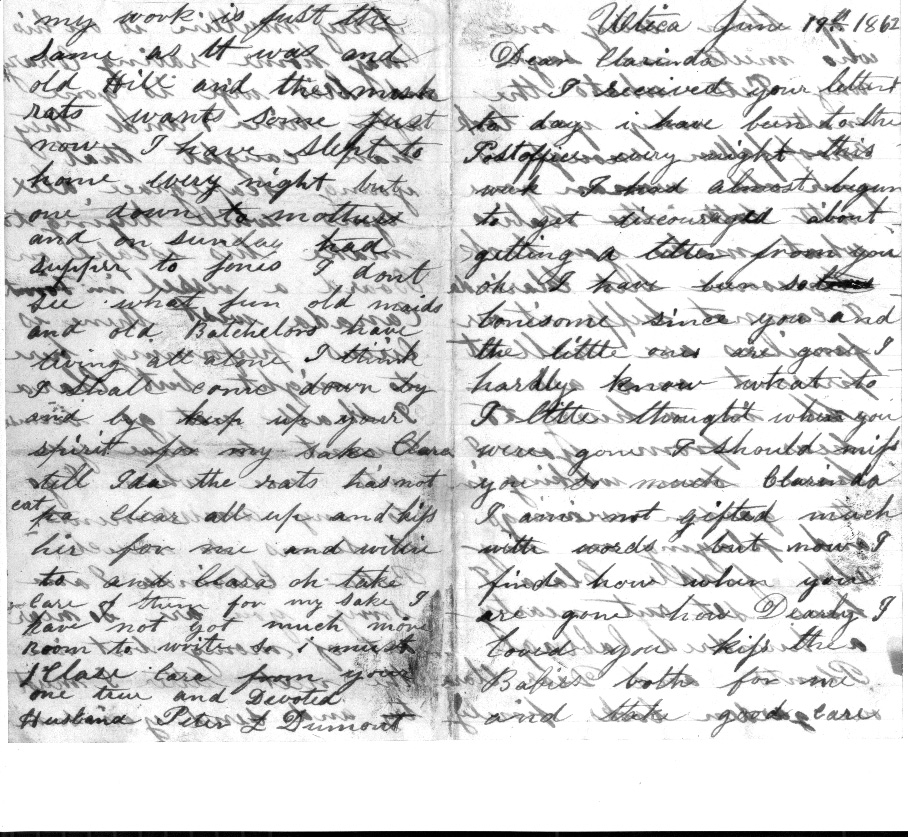 Utica June 19th 1862
Dear Clarinda
I received Your letter
to day i have been to the
Postoffice every night this
week I had almost begun
to get discouraged about
getting a letter from you
oh I have been so
lonisome since you and
the little ones are gone I
hardly know what to
I little thought when you
were gone I should miss
you so much Clarinda
I am not gifted much
with words but now I
find how when you
are gone how Dearly I
loved you kiss the
Babies both for me
and take good care
my work is just the
same as it was and
old Hill and the mush
rats wants some just
now I have slept to
home every night but
one down to mothers
and on sunday had
supper to Jones I dont
see what fun old maids
and old Batchelors have
living all alone I think
I shall come down by
and by keep up your
spirit for my sake Clara
tell Ida the rats has not
eat pa Clear all up and kiss
her for me and willie
to and Clara oh take
care of them for my sake I
have not got much more
room to write so i must
Close Care from your
one true and Devoted
Husband Peter L Dumont